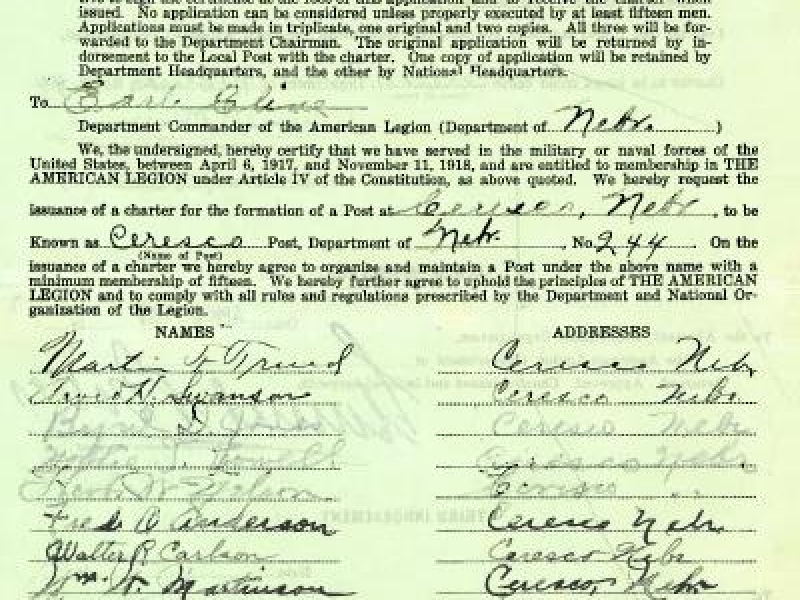 issued. No application can be considered unless properly executed by at least fifteen men.
Applications must be made in triplicate, one original and two copies. All three will be for-
warded to the Department Chairman. The original application will be returned by in-
dorsement to the Local Post with the charter. One copy of application will be retained by
Department Headquarters, and the other by National Headquarters.
To Earl Cline
Department Commander of the American Legion (Department of Nebr. )
We, the undersigned, hereby certify that we have served in the military or naval forces of the
United States, between April 6, 1917, and November 11, 1918, and are entitled to membership in THE
AMERICAN LEGION under Article IV of the Constitution, as above quoted. We hereby request the
issuance of a charter for the formation of a Post at Ceresco, Nebr , to be
Known as Ceresco Post, Department of Nebr. , No. 244 . On the
(Name of Post)
issuance of a charter we hereby agree to organize and maintain a Post under the above name with a
minimum membership of fifteen. We hereby further agree to uphold the principles of THE AMERICAN
LEGION and to comply with all rules and regulations prescribed by the Department and National Or-
ganization of the Legion.
NAMES ADDRESSES
Martin Ceresco Nebr
David N. Swanson Ceresco Nebr
Ceresco Nebr
Ceresco Nebr
Ceresco " "
Fred O Anderson Ceresco Nebr
Walter R Carlson Ceresco Nebr
Wm. W. Martinson Ceresco, Nebr